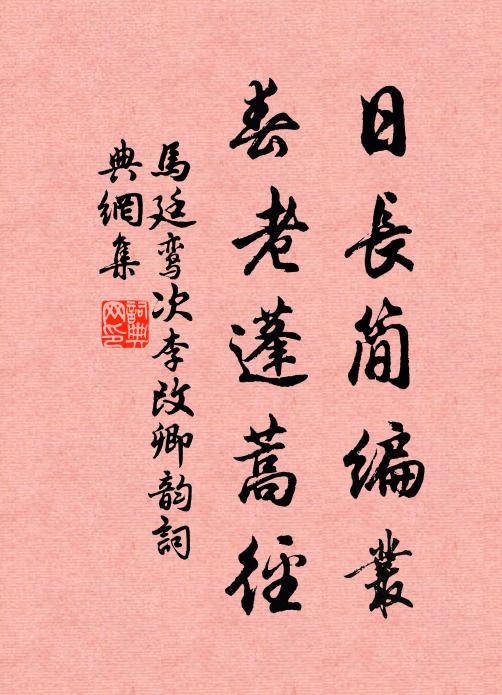 日長简編叢
春老蓬蒿徑
馬廷鸾次李改卿韵詞
典網集
詞典网印